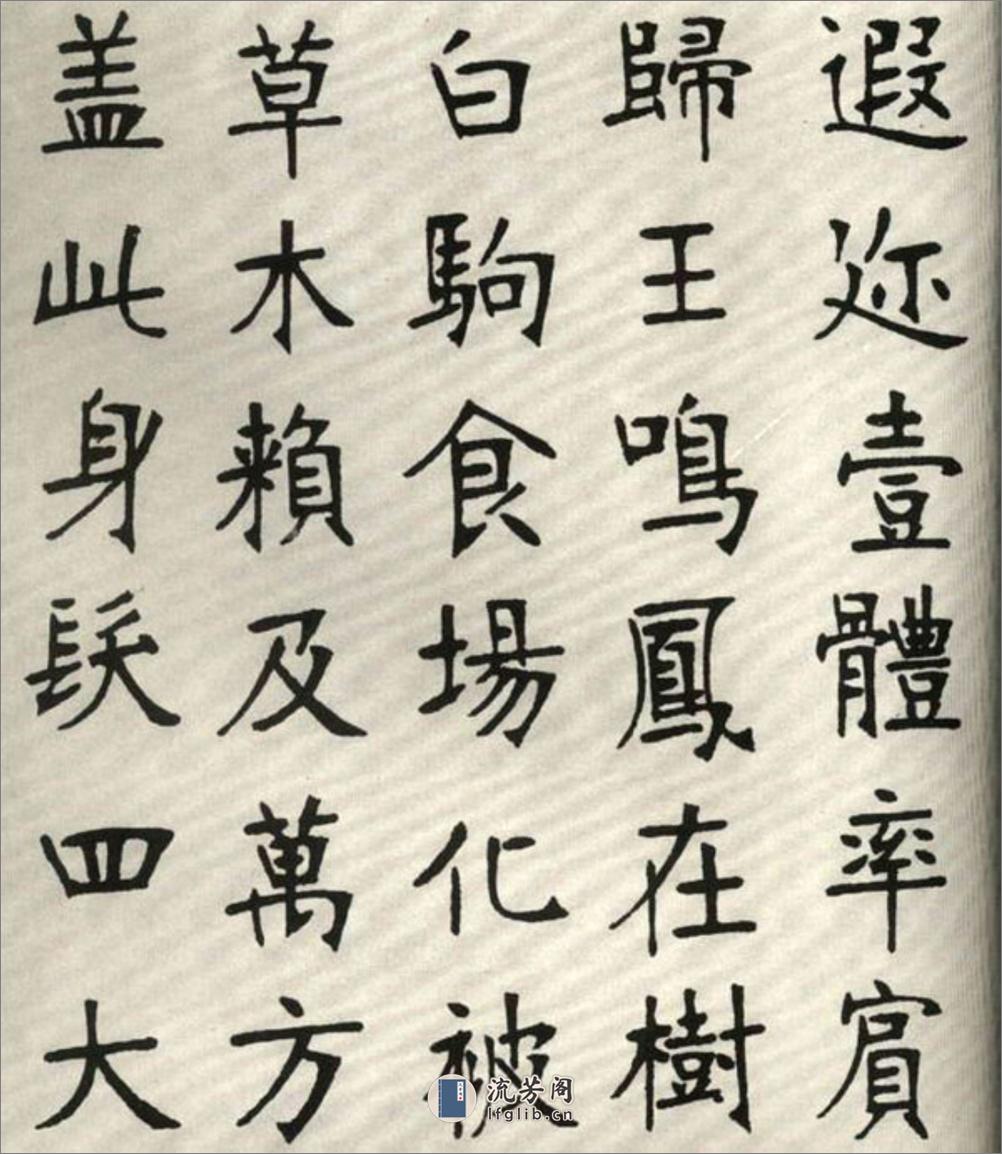 遐迩壹體率賓
歸王鳴鳳在樹
白駒食場化被
草木賴及萬方
盖此身髮四大
流芳阁
lfglib.cn